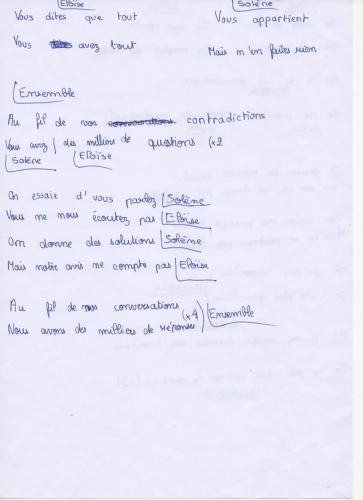 Eloïse Solène
Vous dites que tout Vous appartient
Vous dites avez tout Mais m'en faites rien
Ensemble
Au fil de nos conversations contradictions
Vous avez / des milliers de questions (x2
Solène Eloïse
On essaie d'vous parler Solène
Vous ne nous écoutez pas Eloïse
On donne des solutions Solène
Mais notre avis ne compte pas Eloïse
Au fil de nos conversations (x4) Ensemble
Nous avons des milliers de réponses